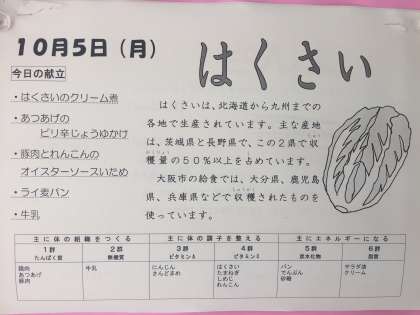 10月5日（月）
はくさい
今日の献立
・はくさいのクリーム煮
・あつあげの
ピリ辛じょうゆかけ
・豚肉とれんこんの
オイスターソースいため
・ライ麦パン
・牛乳
はくさいは、北海道から九州までの
各地で生産されています。主な産地
は、茨城県と長野県で、この2県で収
穫量の50％以上を占めています。
大阪市の給食では、大分県、鹿児島
県、兵庫県などで収穫されたものを
使っています。
主に体の組織をつくる 主に体の調子を整える 主にエネルギーになる
1群 2群 3群 4群 5群 6群
たんぱく質 無機質 ビタミンA ビタミンC 炭水化物 脂質
鶏肉 牛乳 にんじん はくさい パン サラダ油
あつあげ さんどまめ たまねぎ でんぷん クリーム
豚肉 しめじ 砂糖
れんこん